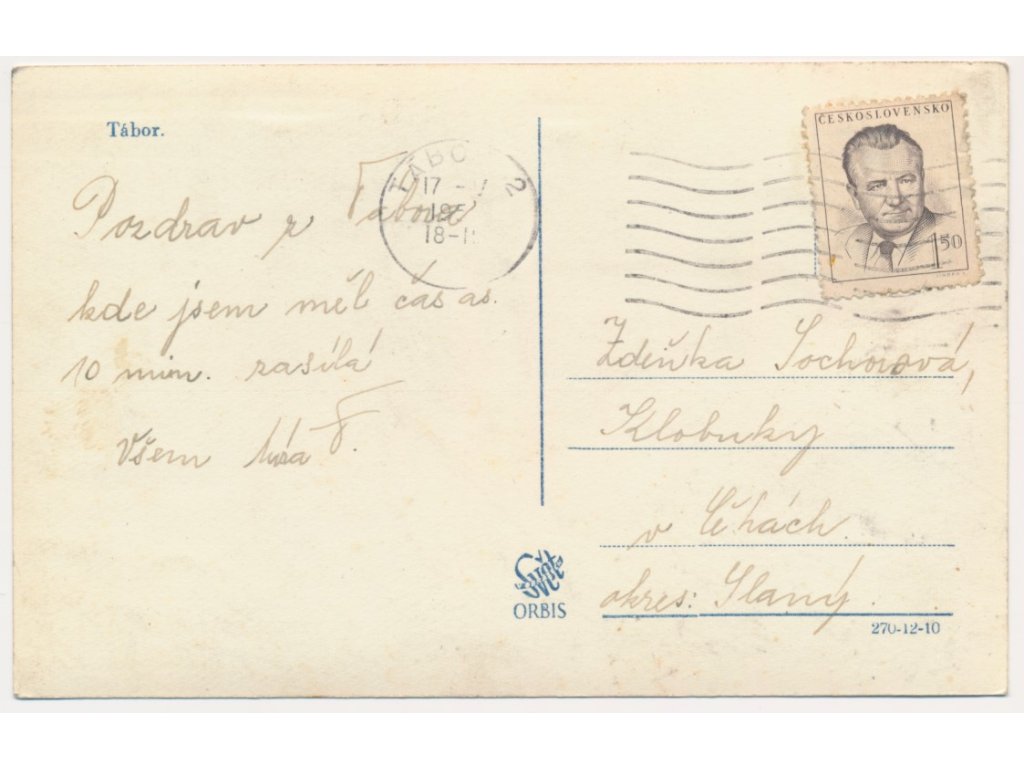 Tábor.
TÁBO 2
17
195
18-1
ČESKOSLOVENSKO
1.50
Pozdrav z Tábora
kde jsem měl čas as.
10 min. zasílá
Všem Míra F.
Zdeňka Sochorová,
Klobuky
v Čhách.
okres: Slaný.
Svět
ORBIS
270-12-10